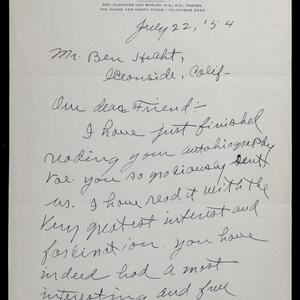 REV. CLARENCE LEVI SHELBY, M.A., D.D., PASTOR
July 22, '54
Mr. Ben Hecht,
Oceanside, Calif-
Our dear Friend:-
I have just finished
reading your autobiography
you so graciously sent
us. I have read it with the
very greatest interest and
fascination. You have
indeed had a most
interesting and full